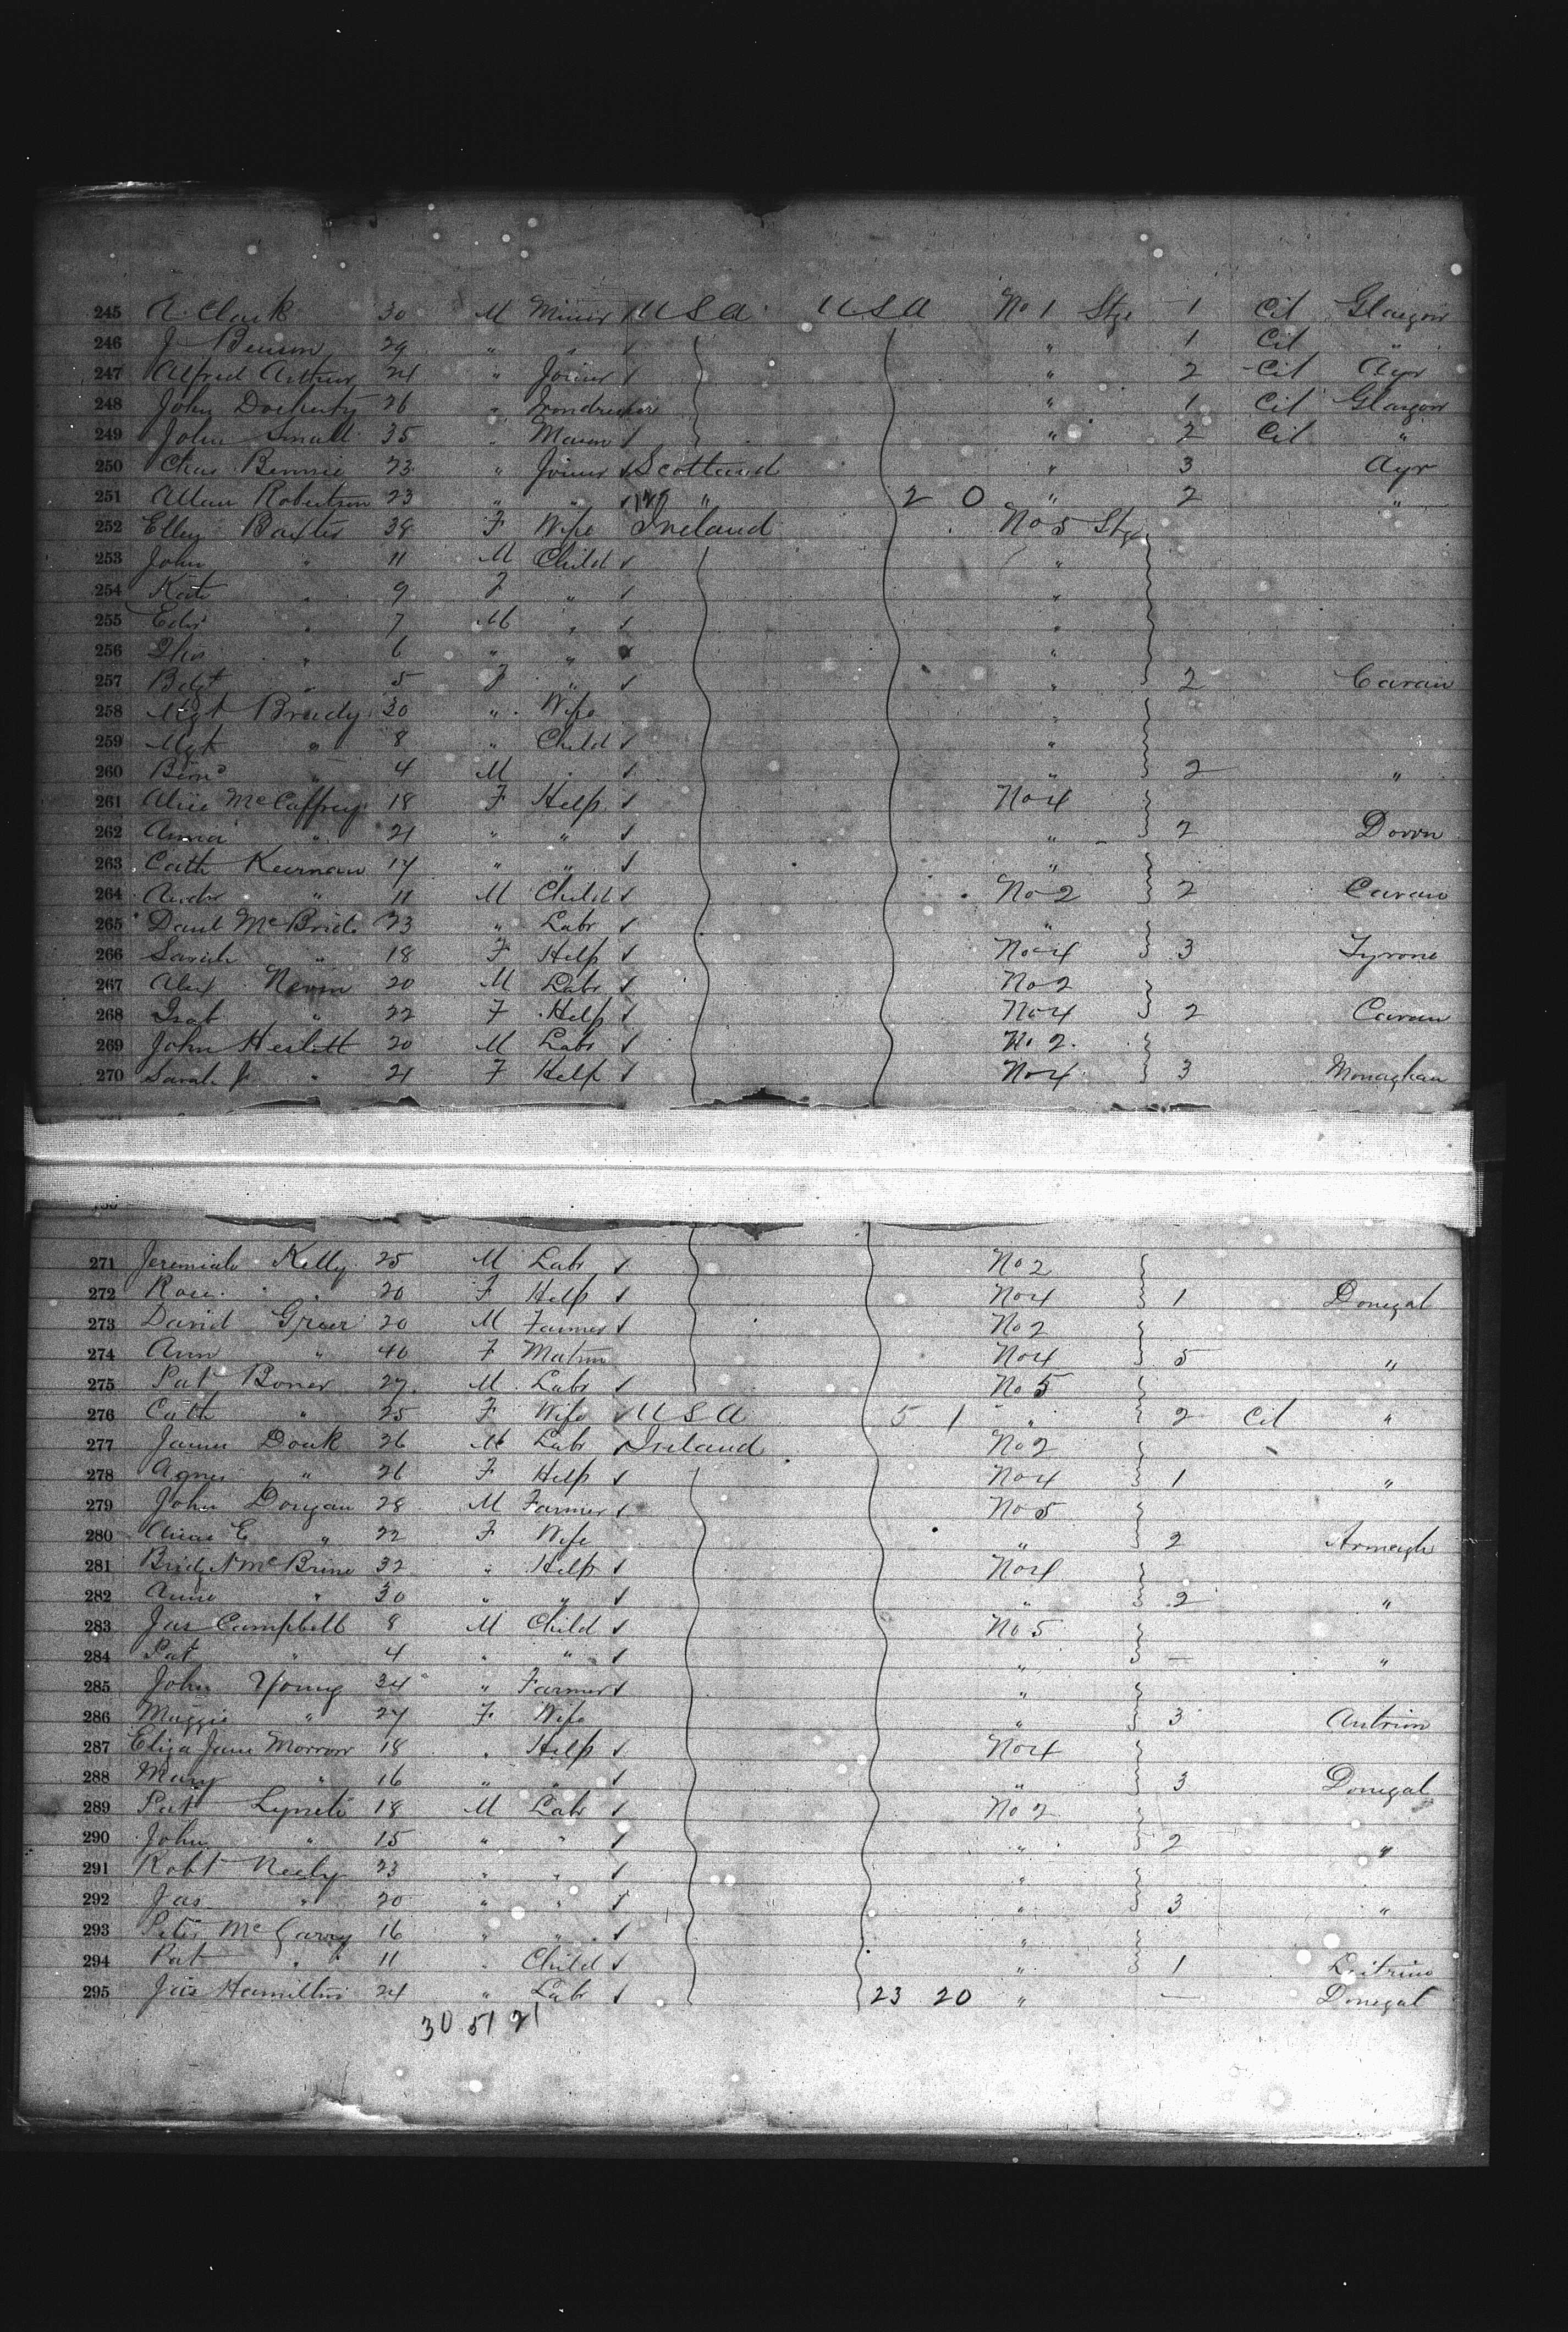 245 A. Clark 30 M Miner USA USA No 1 Stge 1 Cit Glasgow
246 J Benson 29 " " " 1 Cit "
247 Alfred Arthur 24 " Joiner " 2 Cit Ayr
248 John Docherty 26 " Irondresser " 1 Cit Glasgow
249 John Small 35 " Mason " 2 Cit "
250 Chas Bennie 23 " Joiner Scotland " 3 Ayr
251 Allan Robertson 23 " " " 2 0 " 2 "
252 Elley Baxter 38 F Wife Ireland No 5 Stge
253 John " 11 M Child "
254 Kate " 9 F " "
255 Edw " 7 M " "
256 Thos " 6 " " "
257 Bdgt " 5 F " " 2 Cavan
258 Mgt Brady 30 " Wife "
259 Mgt " 8 " Child "
260 Bernd " 4 M " " 2 "
261 Alice McCaffrey 18 F Help No 4
262 Anna " 21 " " " 2 Down
263 Cath Keernan 17 " " "
264 Andr " 11 M Child No 2 2 Cavan
265 Danl McBride 23 " Labr "
266 Sarah " 18 F Help No 4 3 Tyrone
267 Alex Nevin 20 M Labr No 2
268 Isab " 22 F Help No 4 2 Cavan
269 John Heslett 20 M Labr No 2
270 Sarah J. " 21 F Help No 4 3 Monaghan
271 Jeremiah Kelly 25 M Labr No 2
272 Rose " 20 F Help No 4 1 Donegal
273 David Greer 20 M Farmer No 2
274 Ann " 40 F Matron No 4 5 "
275 Pat Boner 27 M Labr No 5
276 Cath " 25 F Wife USA 5 1 " 2 Cit "
277 James Douk 26 M Labr Ireland No 2
278 Agnes " 26 F Help No 4 1 "
279 John Dougan 28 M Farmer No 5
280 E " 22 F Wife " 2 Armagh
281 Bridgt McBrine 32 " Help No 4
282 Anne " 30 " " " 2 "
283 Jas Campbell 8 M Child No 5
284 Pat " 4 " " " — "
285 John Young 34 " Farmer "
286 Maggie " 27 F Wife " 3 Antrim
287 Eliza Jane Morrow 18 " Help No 4
288 Mary " 16 " " " 3 Donegal
289 Pat Lynch 18 M Labr No 2
290 John " 15 " " " 2 "
291 Robt Neely 23 " " "
292 Jas " 20 " " " 3 "
293 Peter McGarry 16 " " "
294 Pat " 11 " Child " 1 Leitrim
295 Jas Hamilton 24 " Labr 23 20 " — Donegal
30 51 21